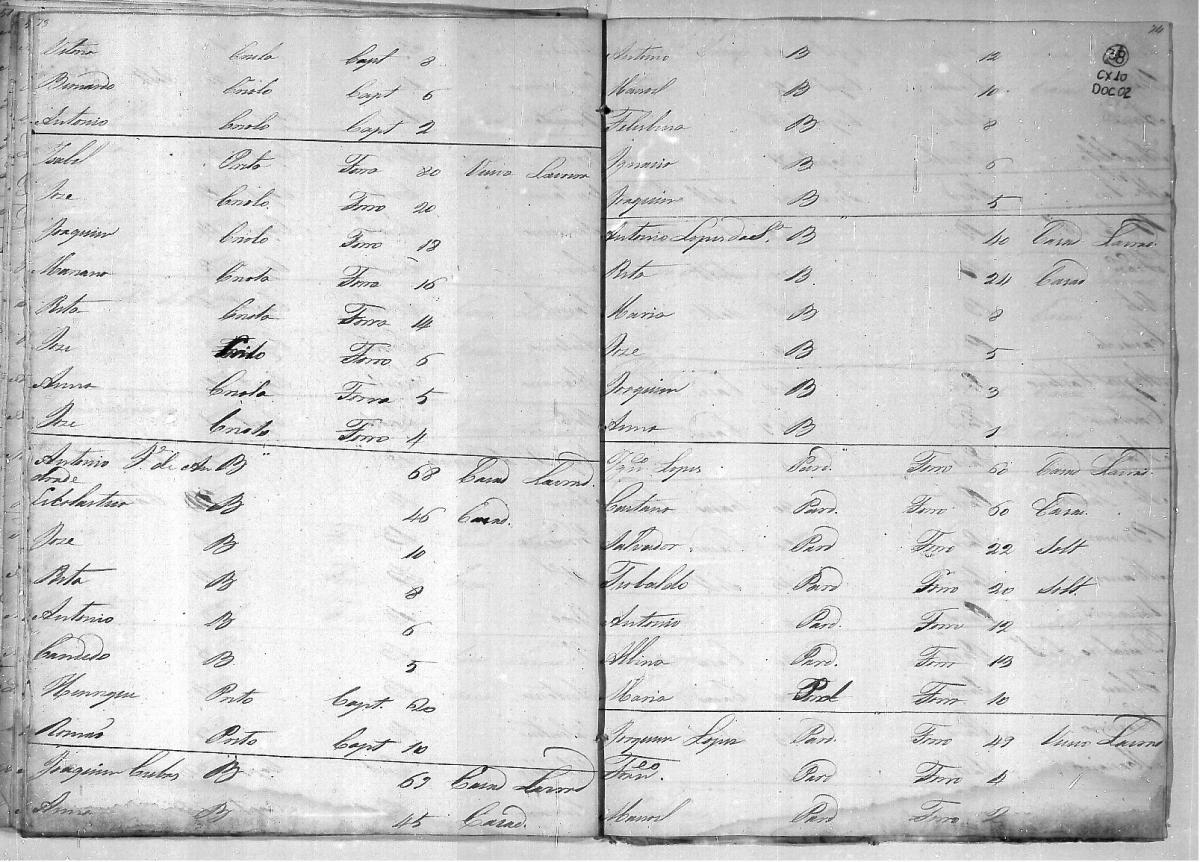 73
Criolo Capt 8
Bernardo Criolo Capt 6
Antonio Criolo Capt 2
Izabel Preta Forra 80 Viuva Lavrora
Joze Criolo Forro 20
Joaquim Criolo Forro 18
Mariana Criola Forra 16
Rita Criola Forra 14
Joze Criolo Forro 6
Anna Criola Forra 5
Joze Criolo Forro 4
Antonio B 68 Casad Lavrad.
Escolastica B 46 Casad.
Joze B 10
Rita B 8
Antonio B 6
Candido B 5
Henrique Preto Capt. 20
Romão Preto Capt 10
Joaquim Cubas B 69 Casad Lavrad
Anna B 45 Casad.
74
38
CX10
DOC 02
Antonio B 12
Manoel B 10
B 8
Ignacio B 6
Joaquim B 5
Antonio Lopes da S.ª B 40 Casad Lavrad.
Rita B. 24 Casad
Maria B 8
Joze B 5
Joaquim B 3
Anna B 1
Lopes Pard. Forro 60 Casad Lavrad.
Caetana Pard. Forro 60 Casad.
Salvador Pard Forro 22 Solt
Teobaldo Pard Forro 20 Solt
Antonio Pard. Forro 12
Albina Pard. Forr 13
Maria Pard Forr 10
Joaquim Lopes Pard. Forro 49 Viuvo Lavrad
Fr.co Pard Forro 4
Manoel Pard Forro 2